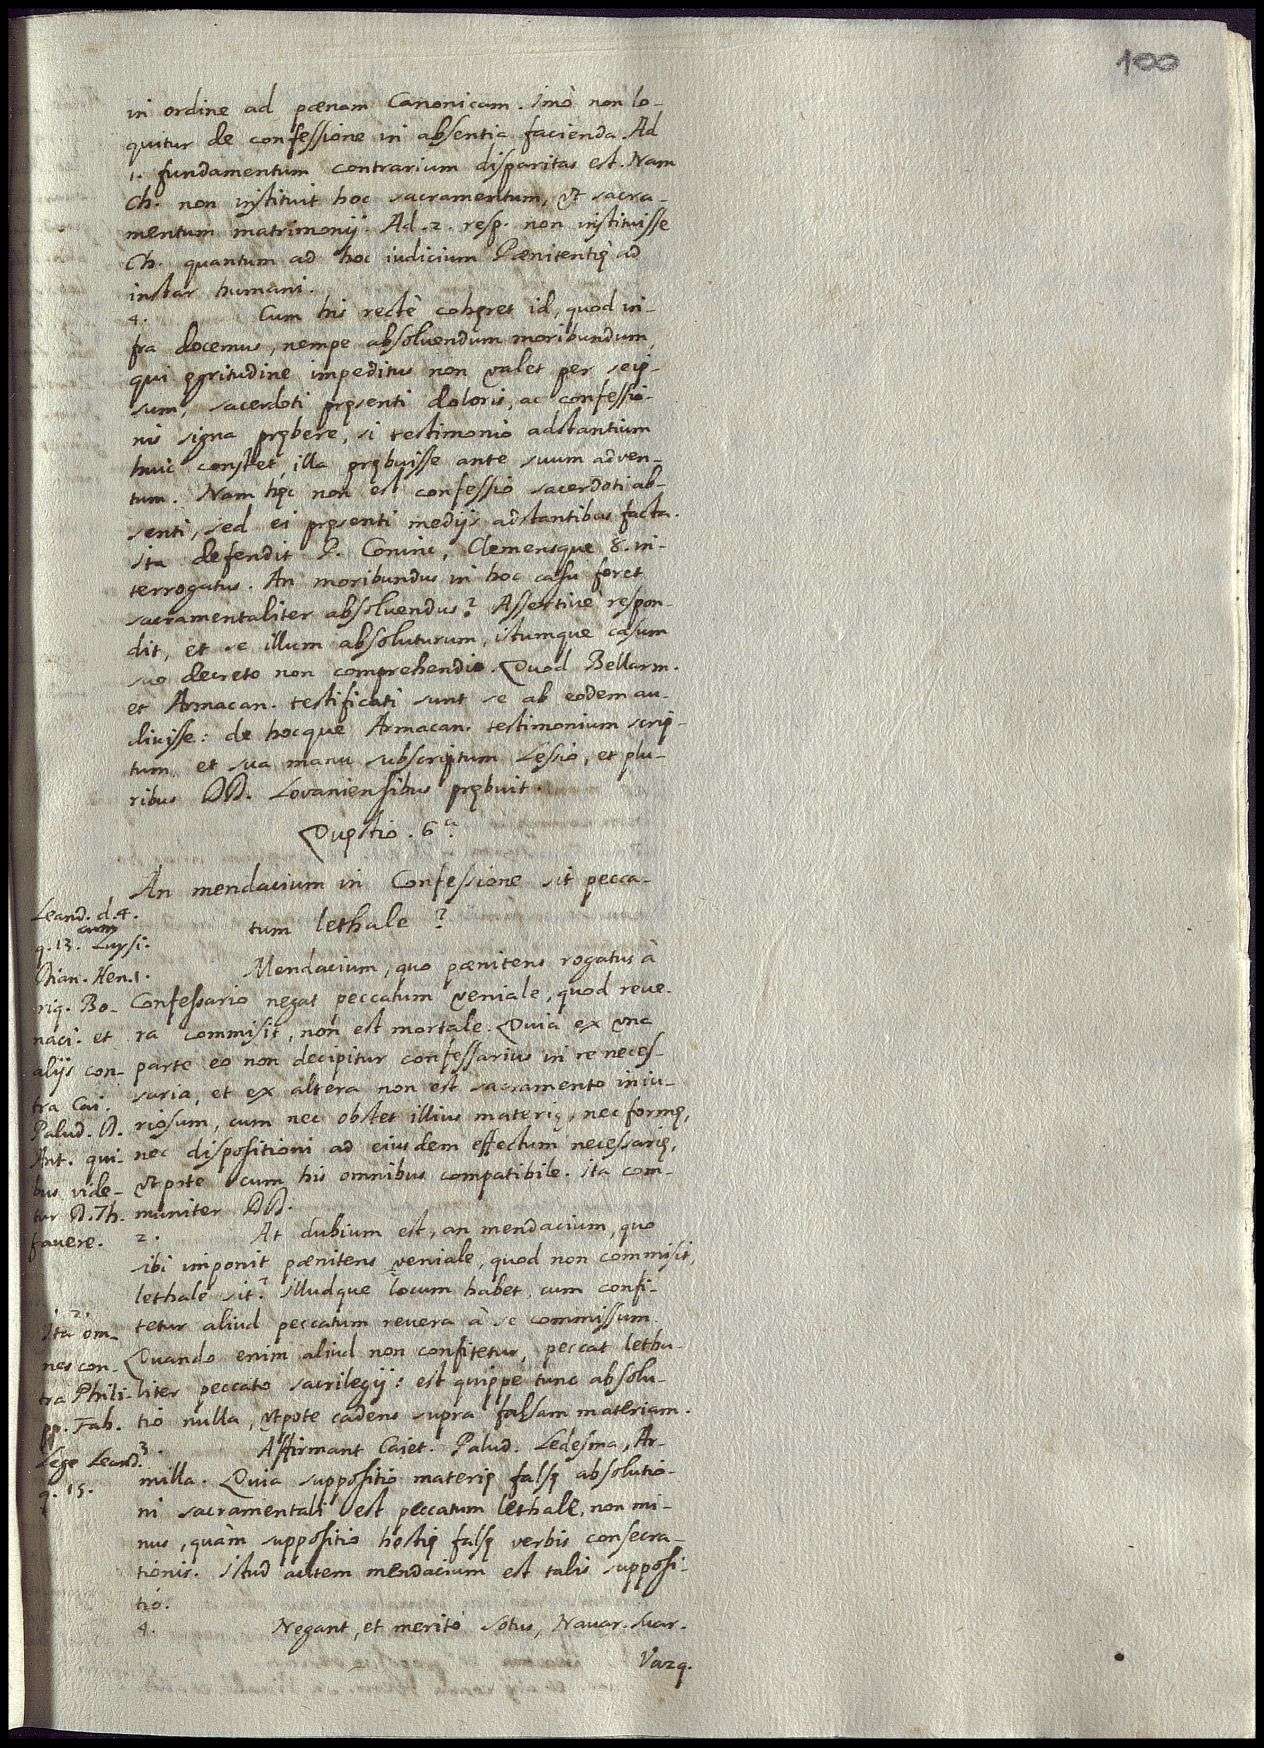 100
in ordine ad pœnam Canonicam. Imò non lo-
quitur de confessione in absentia facienda. Ad
1. fundamentum contrarium disparitas est. Nam
Ch. non instituit hoc sacramentum, vt sacra-
mentum matrimonij. Ad .2. resp. non instituisse
Ch. quantum ad hoc iudicium Pœnitentię ad
instar humani.
4. Cum his rectè cohęret id, quod in-
fra docemus, nempe absoluendum moribundum,
qui ęgritudine impeditus non valet per seip-
sum, sacerdoti pręsenti doloris, ac confessio-
nis signa prębere, si testimonio adstantium
huic constet, illa prębuisse ante suum adven-
tum. Nam hęc non est confessio sacerdoti ab-
senti, sed ei pręsenti medijs adstantibus facta.
Ita defendit P. Coninc, Clemensque 8. in-
terrogatus. An moribundus in hoc casu foret
sacramentaliter absoluendus? Assertiuè respon-
dit, et se illum absoluturum, istumque casum
suo decreto non comprehendi. Quod Bellarm.
et Armacan. testificati sunt se ab eodem au-
divisse: de hocque Armacan. testimonium scrip-
tum et sua manu subscriptum Lessio, et plu-
ribus DD. Lovaniensibus prębuit.
Quęstio . 6ᵃ.
An mendacium in Confessione sit pecca-
tum lethale?
Leand. d.4.
q. 13. cum Laysi.
Dian. Hen-
riq. Bo-
naci. et
alijs con-
tra Cai.
Palud. D.
Ant. qui-
bus vide-
tur D. Th.
favere.
1. Mendacium, quo pœnitens rogatus à
Confessario negat peccatum veniale, quod reue-
ra commisit, non est mortale. Quia ex vna
parte eo non decipitur confessarius in re neces-
saria, et ex altera non est sacramento iniu-
riosum, cum nec obstet illius materię, nec formę,
nec dispositioni ad eiusdem effectum necessarię,
vtpote cum his omnibus compatibile. Ita com-
muniter DD.
2. At dubium est, an mendacium, quo
sibi imponit pœnitens veniale, quod non commisit,
lethale sit? Illudque locum habet, cum confi-
tetur aliud peccatum revera à se commissum.
Quando enim aliud non confitetur, peccat letha-
liter peccato sacrilegij: est quippe tunc absolu-
tio nulla, vtpote cadens supra falsam materiam.
2.
Ita om-
nes con-
tra Phili-
pp. Fab.
Lege Leand.
q. 15.
3. Affirmant Caiet. Palud. Ledesma, Ar-
milla. Quia suppositio materię falsę absolutio-
ni sacramentali est peccatum lethale, non mi-
nus, quàm suppositio hostię falsę verbis consecra-
tionis. Istud autem mendacium est talis supposi-
tio.
4. Negant, et meritò Sotus, Navar. Suar.
Vazq.